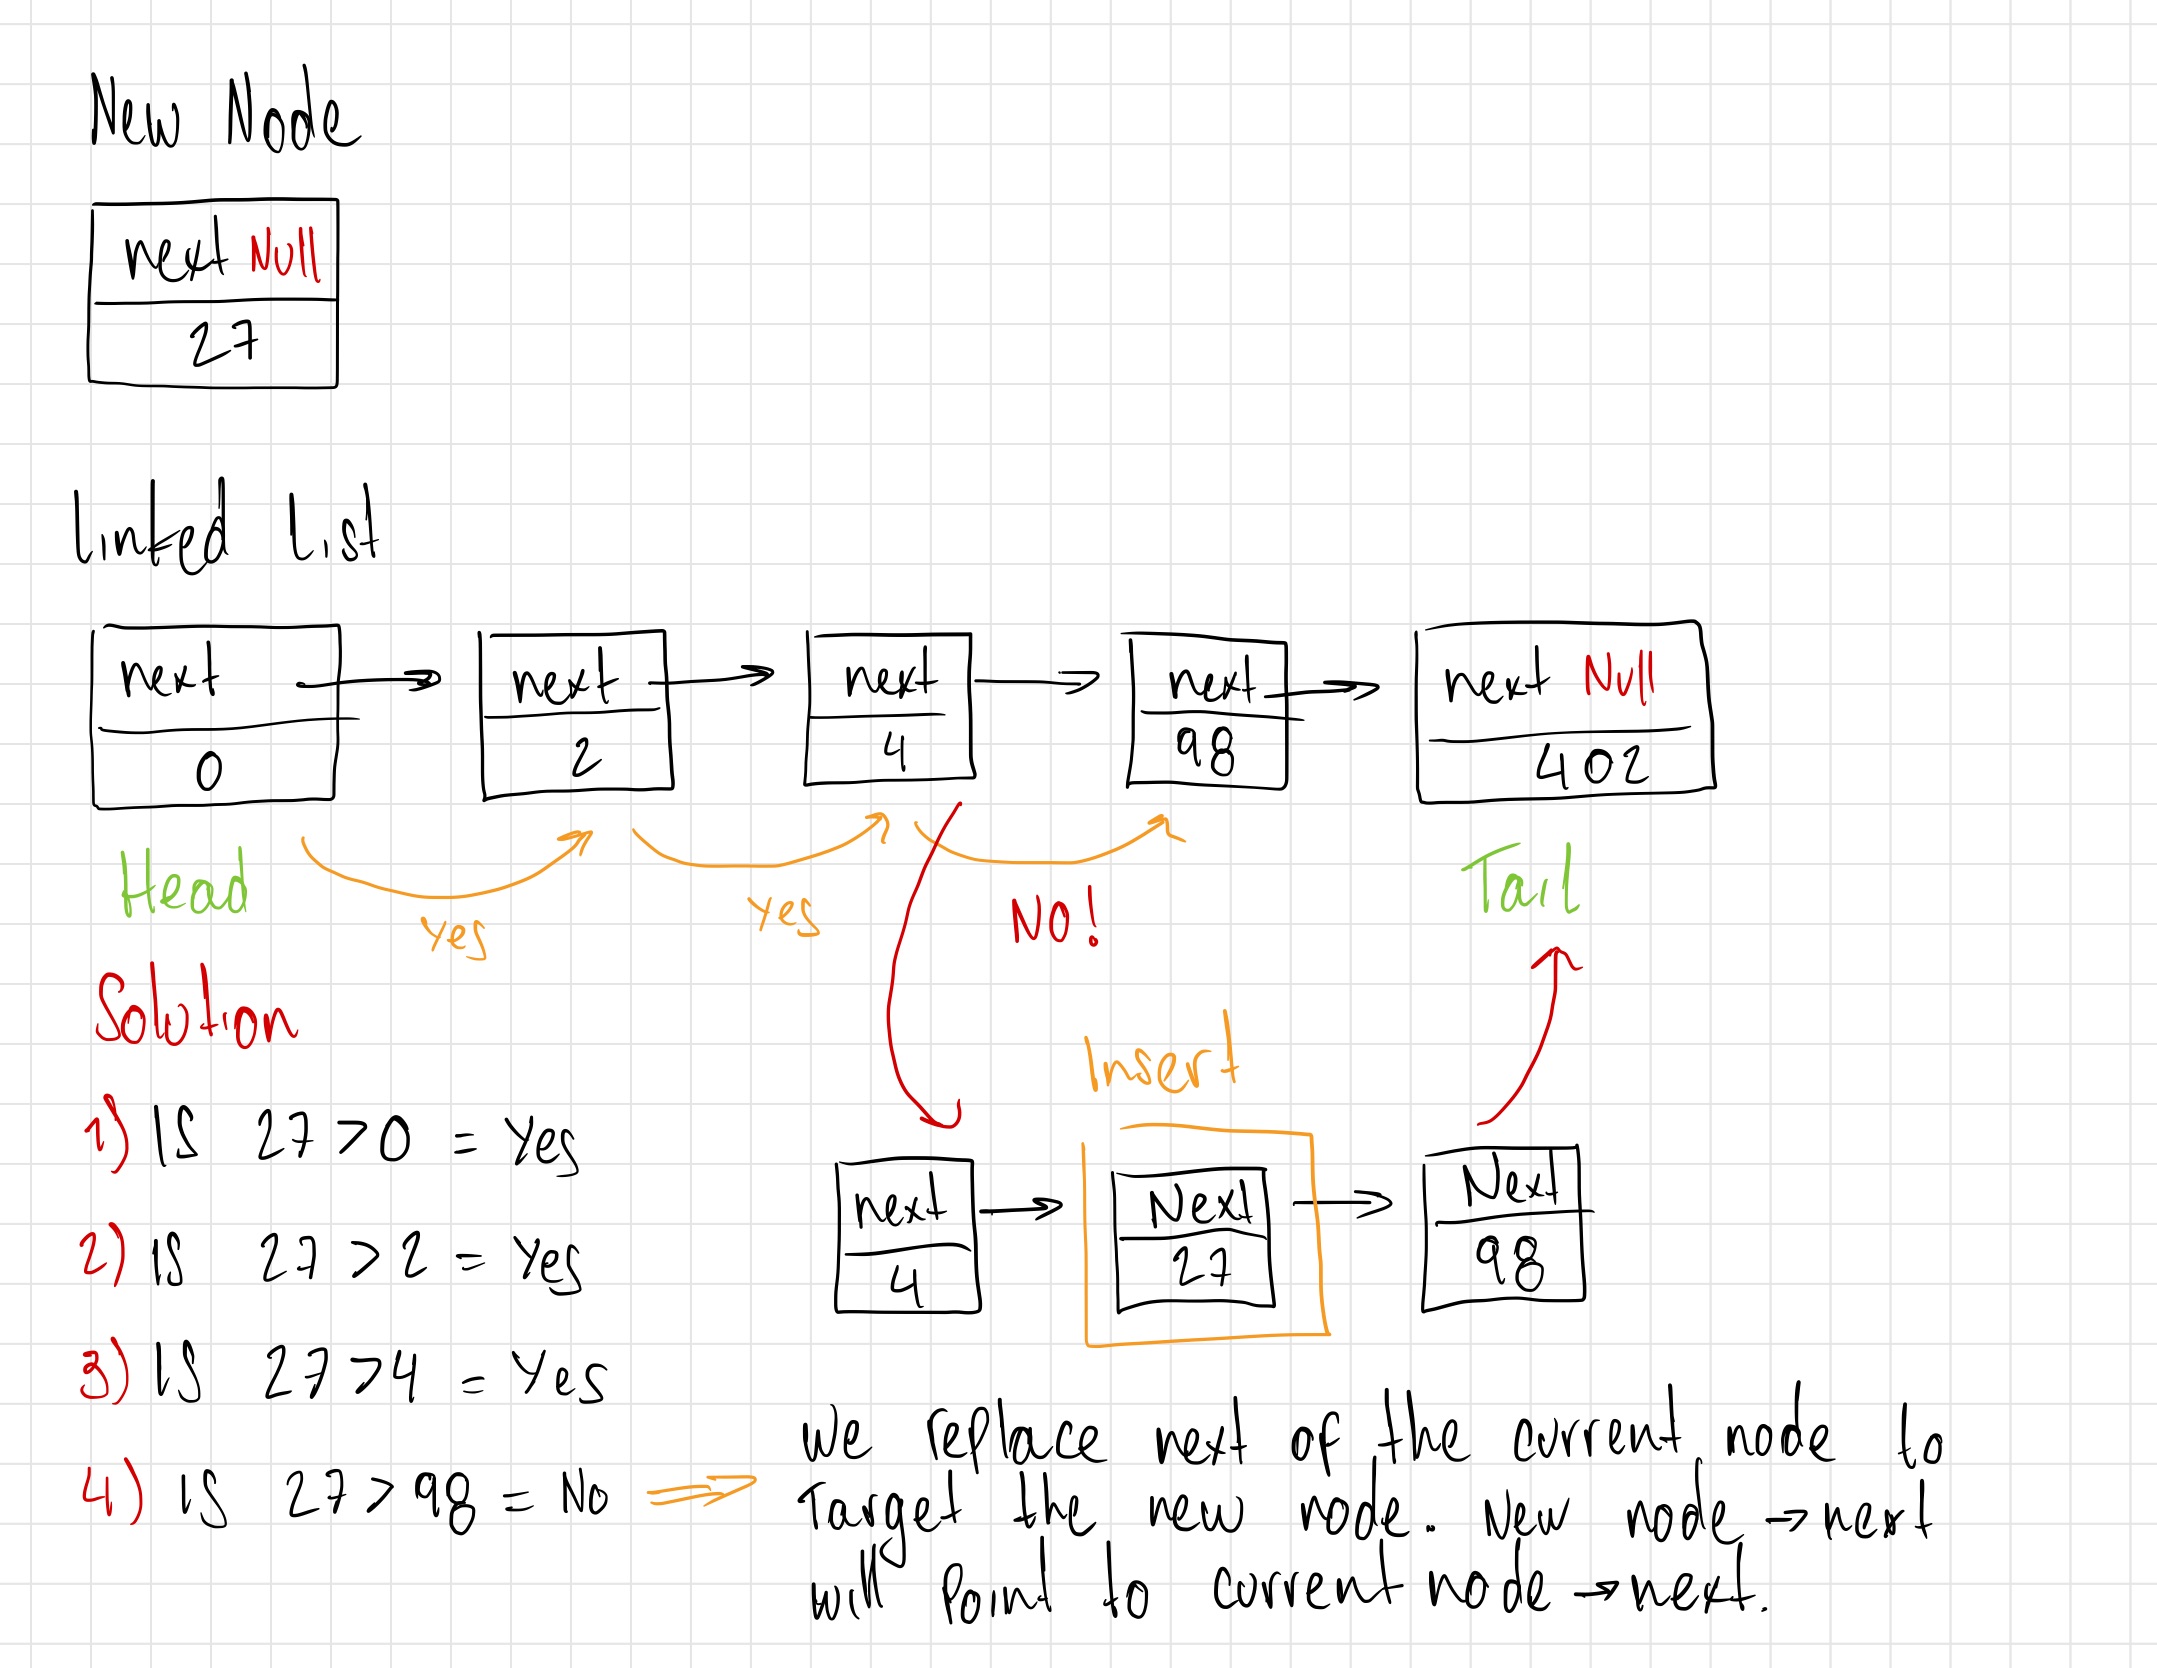 New Node
next Null
27
Linked List
next
0
next
2
next
4
next
98
next Null
402
Head
Yes
Yes
NO!
Tail
Solution
1) IS 27 > 0 = Yes
2) IS 27 > 2 = Yes
3) IS 27 > 4 = Yes
4) IS 27 > 98 = No
Insert
next
4
Next
27
Next
98
We replace next of the current node to
Target the new node. New node → next
will Point to current node → next.